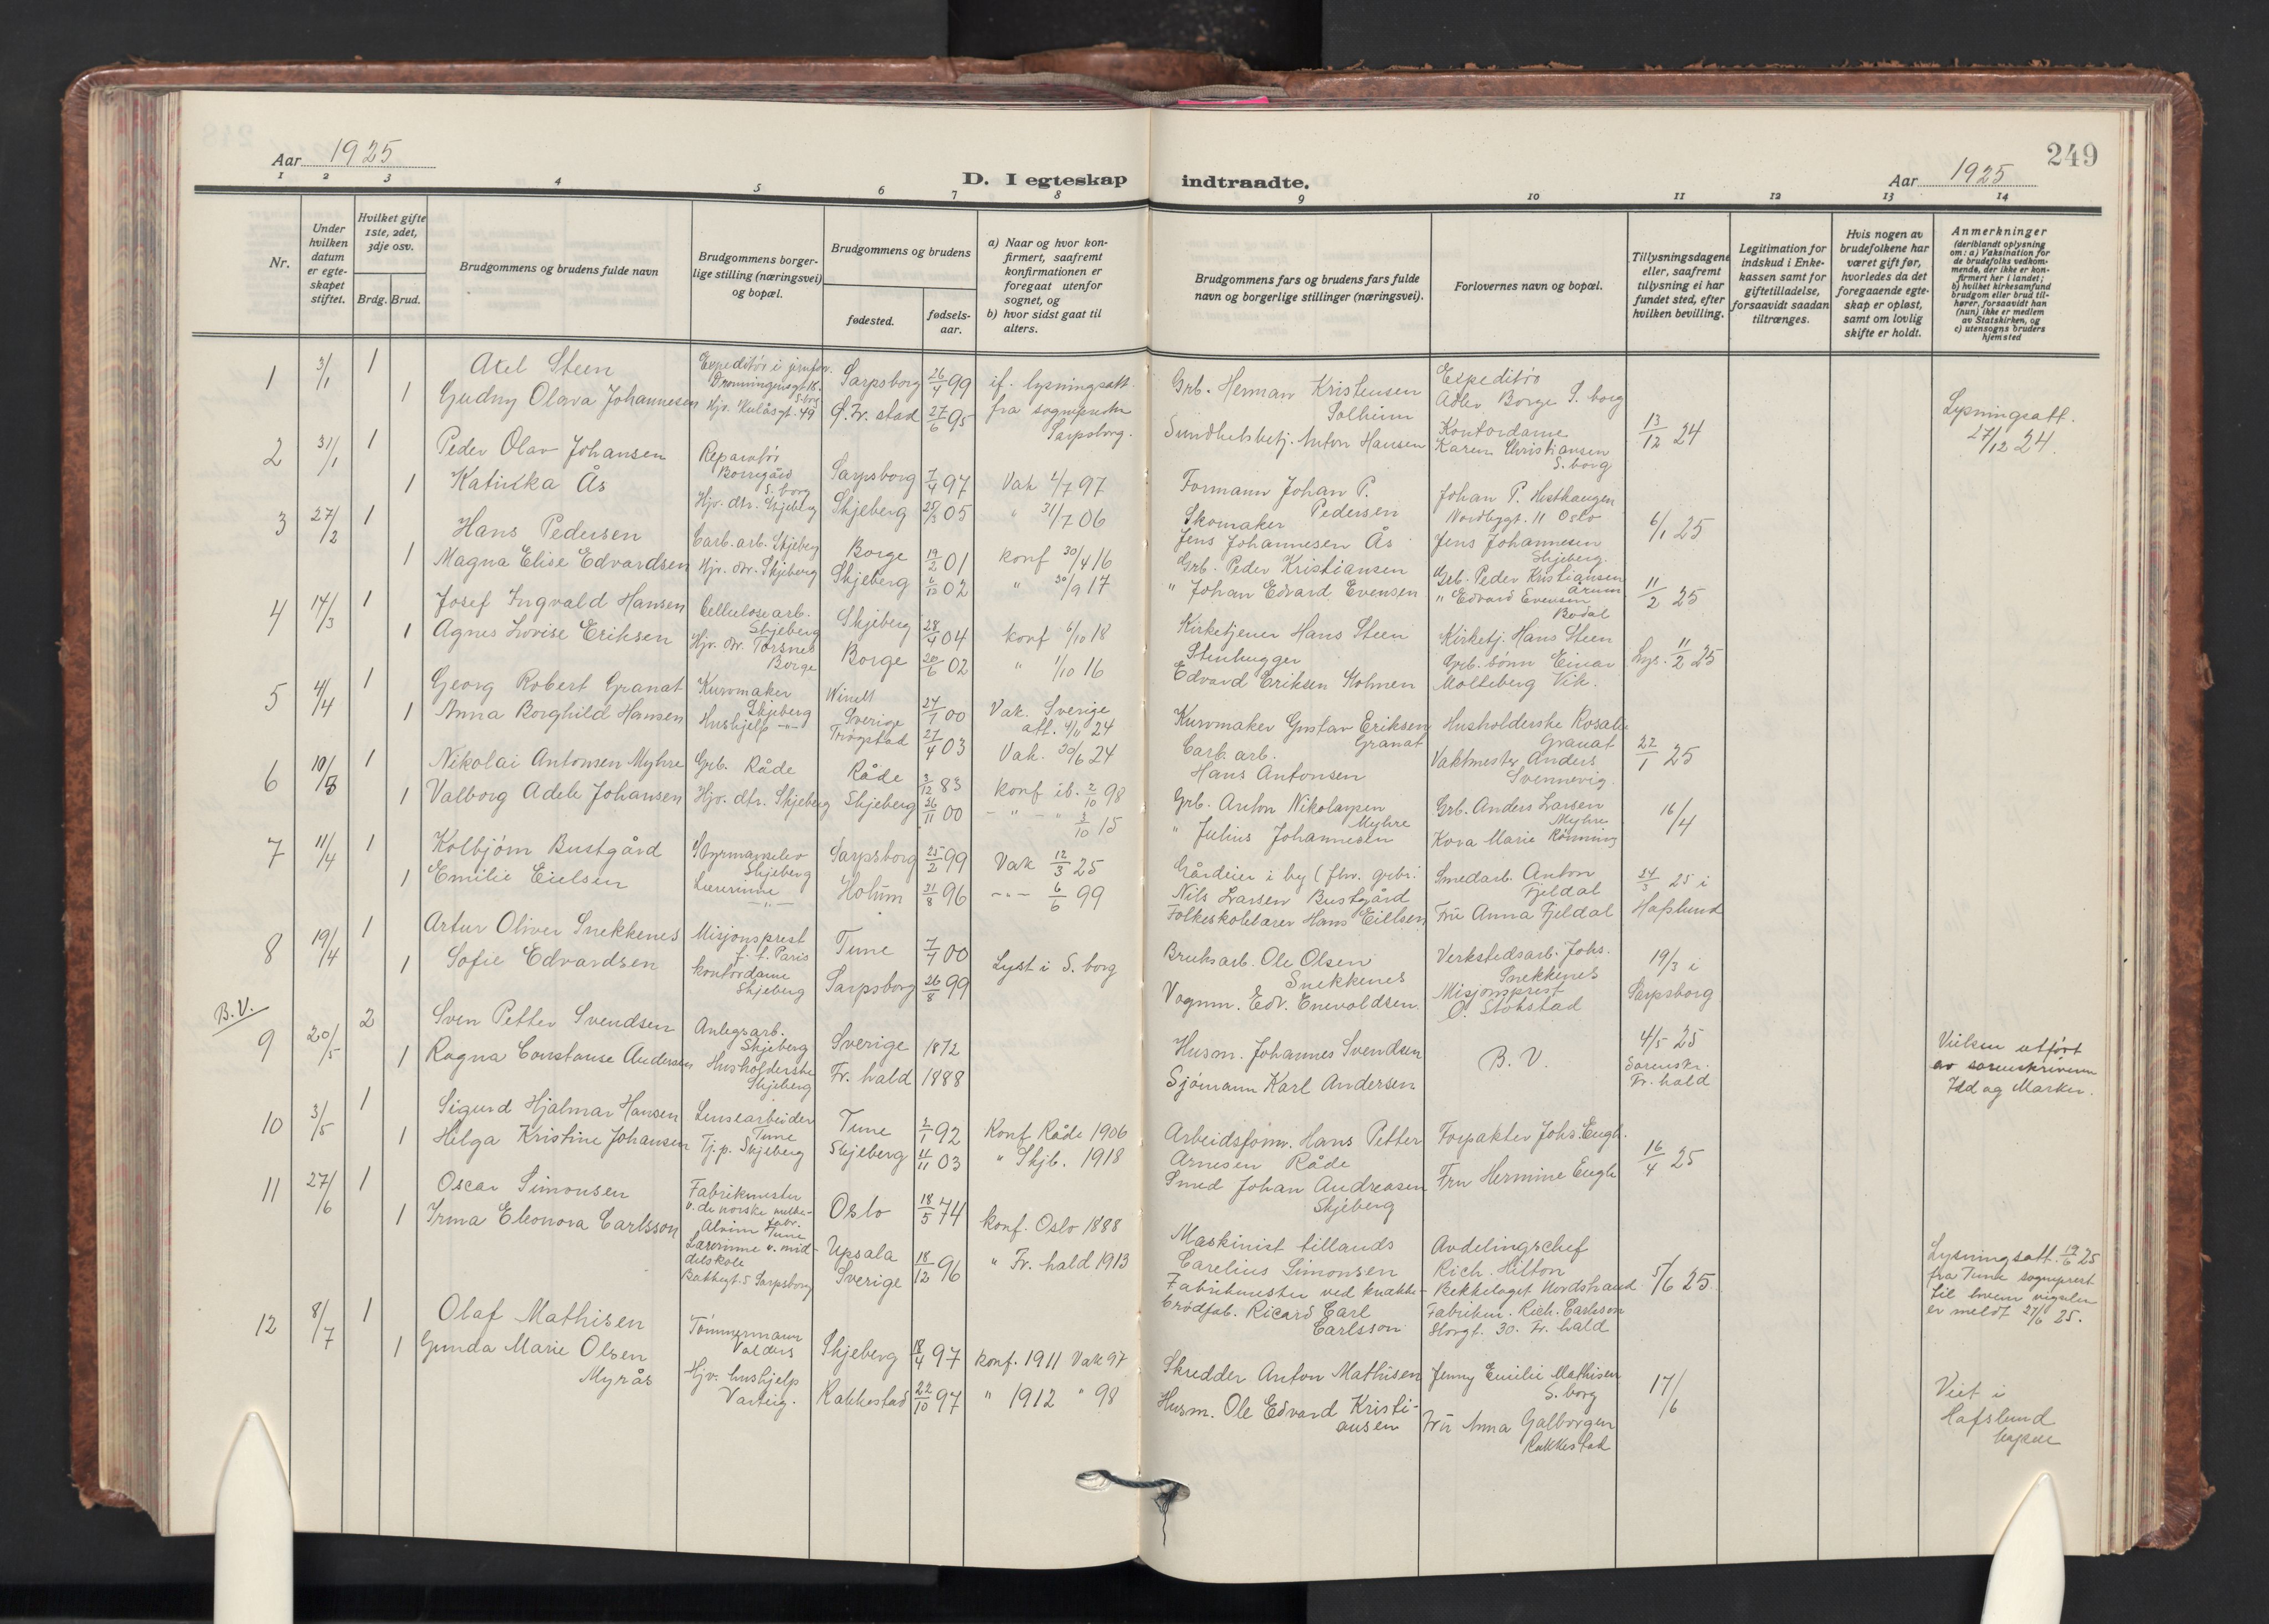 Aar 1925
249
D. I egteskap indtraadte.
Aar 1925
1 2 3 4 5 6 7 8 9 10 11 12 13 14
Nr.
Under hvilken datum er egte-skapet stiftet.
Hvilket gifte 1ste, 2det, 3dje osv.
Brdg. Brud.
Brudgommens og brudens fulde navn
Brudgommens borger-lige stilling (næringsvei) og bopæl.
Brudgommens og brudens
fødested.
fødsels-aar.
a) Naar og hvor kon-firmert, saafremt konfirmationen er foregaat utenfor sognet, og
b) hvor sidst gaat til alters.
Brudgommens fars og brudens fars fulde navn og borgerlige stillinger (næringsvei).
Forlovernes navn og bopæl.
Tillysningsdagene eller, saafremt tillysning ei har fundet sted, efter hvilken bevilling.
Legitimation for indskud i Enke-kassen samt for giftetilladelse, forsaavidt saadan tiltrænges.
Hvis nogen av brudefolkene har været gift før, hvorledes da det foregaaende egte-skap er opløst, samt om lovlig skifte er holdt.
Anmerkninger
(deriblandt oplysning om: a) Vaksination for de brudefolks vedkom-mende, der ikke er kon-firmert her i landet; b) hvilket kirkesamfund brudgom eller brud til-hører, forsaavidt han (hun) ikke er medlem av Statskirken, og c) utensogns bruders hjemsted
1 3/1 1 Axel Steen Expeditør i jernfor. Dronningensgt. 18 S.borg Sarpsborg 26/4 99 if. lysningsatt. Grb. Herman Kristensen Solheim Expeditrø Adler Borge S. borg
1 Gudny Olava Johannesen Hjv. Kulåsgt. 49 G. Fr. stad 27/6 95 fra sogneprsten Sarpsborg. Sundhetsbetj. Anton Hansen Kontordame Karen Christiansen S. borg 13/12 24 Lysningsatt. 27/12 24.
2 31/1 1 Peder Olav Johansen Reparatør Borregård S. borg Sarpsborg 7/4 97 Vak 2/7 97 Formann Johan P. Pedersen Johan P. Hosthaugen Nordbygt. 11 Oslo
1 Katinka Ås Hjv. dtr. Skjeberg Skjeberg 25/3 05 " 31/7 06 Skomaker Jens Johannesen Ås Jens Johannesen Skjeberg. 6/1 25
3 27/2 1 Hans Pedersen Carb. arb. Skjeberg Borge 19/2 01 konf 30/4 16 Grb. Peder Kristiansen Grb. Peder Kristiansen Årum
1 Magna Elise Edvardsen Hjv. dtr. Skjeberg Skjeberg 2/12 02 " 30/9 17 " Johan Edvard Evensen " Edvard Evensen Bodal 11/2 25
4 14/3 1 Josef Ingvald Hansen Cellulosearb. Skjeberg Skjeberg 28/4 04 konf 6/10 18 Kirketjener Hans Steen Kirketj. Hans Steen
1 Agnes Lovise Eriksen Hjv. dtr. Torsnes Borge Borge 20/6 02 " 1/10 16 Stenhugger Edvard Eriksen Holmen Grb. sønn Einar Molteberg Vik. Lys. 11/2 25
5 4/4 1 Georg Robert Granat Kurvmaker Skjeberg Sverige 24/7 00 Vak. Sverige att. 4/11 24 Kurvmaker Gustav Eriksen Granat Husholderske Rosalie Granat
1 Anna Borghild Hansen Hushjelp -"- Trøgstad 27/4 03 Vak. 30/6 24 Carb. arb. Hans Antonsen Vaktmester Anders Svennevig. 22/1 25
6 10/5 1 Nikolai Antonsen Myhre Grb. Råde Råde 3/12 83 konf ib. 2/10 98 Grb. Anton Nikolaysen Myhre Grb. Anders Larsen Myhre 16/4
1 Valborg Adele Johansen Hjv. dtr. Skjeberg Skjeberg 26/11 00 - " - " 3/10 15 " Julius Johannesen Kora Marie Rønning
7 11/4 1 Kolbjørn Bustgård Styrmannselev Skjeberg Sarpsborg 25/2 99 Vak 12/3 25 Gårdeier i by (fhv. grbr. Nils Larsen Bustgård Smedarb. Anton Fjeldal 24/3 25 i
1 Emilie Eielsen Lærerinne -"- Holum 31/8 96 -"- 6/6 99 Folkeskolelærer Hans Eillsen Frü Anna Fjeldal Hafslund
8 19/4 1 Artur Oliver Snekkenes Misjonsprest f. t. Paris Tune 7/7 00 Lyst i S. borg Bruksarb. Ole Olsen Snekkenes Verkstedsarb. Johs. Snekkenes 19/3 i
1 Sofie Edvardsen Kontordame Skjeberg Sarpsborg 26/8 99 Vognm. Edv. Enevoldsen. Misjonsprest O. Stokstad Sarpsborg
B.V.
9 20/5 2 Sven Petter Svendsen Anlegsarb. Skjeberg Sverige 1872 Husm. Johannes Svendsen B. V. 4/5 25 Vielsen utført
1 Ragna Constanse Andersen Husholderske Skjeberg Fr. hald 1888 Sjømann Karl Andersen Sorenskr. Fr. hald av sorenskriveren Idd og Marker.
10 3/5 1 Sigurd Hjalmar Hansen Lensearbeider Tune Tune 2/1 92 Konf Råde 1906 Arbeidsform. Hans Petter Arnesen Råde Forpakter Johs. Engh.
1 Helga Kristine Johansen Tj. p. Skjeberg Skjeberg 11/11 03 " Skjb. 1918 Smed Johan Andreasen Skjeberg Fru Hermine Engh 16/4 25
11 27/6 1 Oscar Simonsen Fabrikmester v. de norske melke-fabr. Alvim Tune Oslo 18/5 74 konf. Oslo 1888 Maskinist tillands Carelius Simonsen Avdelingschef Rich. Hilton Bekkelaget Nordstrand 5/6 25.
1 Irma Eleonora Carlsson Lærerinne v. mid-delskole Bakkegt. 5 Sarpsborg Upsala Sverige 18/12 96 " Fr. hald 1913 Fabrikmester ved knække-brødfab. Ricard Carl Carlsson Fabrikm. Rich. Carlsson Storgt. 30. Fr. hald Lysningsatt. 19/6 25 fra Tune sogneprest til hvem vigselen er meldt 27/6 25.
12 8/7 1 Olaf Mathisen Tømmermann Valders Skjeberg 18/4 97 konf. 1911 Vak 97 Skredder Anton Mathisen Jenny Emilie Mathisen S. borg 17/6
1 Gunda Marie Olsen Myrås Hjv. hushjelp Varteig. Rakkestad 22/10 97 " 1912 " 98 Husm. Ole Edvard Kristi-ansen Frü Anna Galborgen Rakkestad Viet i Hafslund kapell